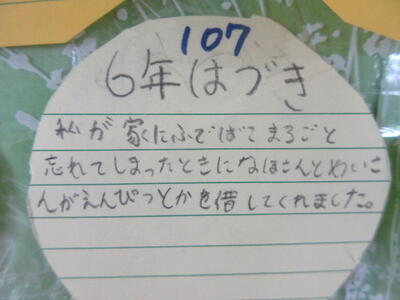 107
6年はづき
私が家にふでばこまるごと
忘れてしまったときになほさんとめいさ
んがえんぴつとかを借してくれました。